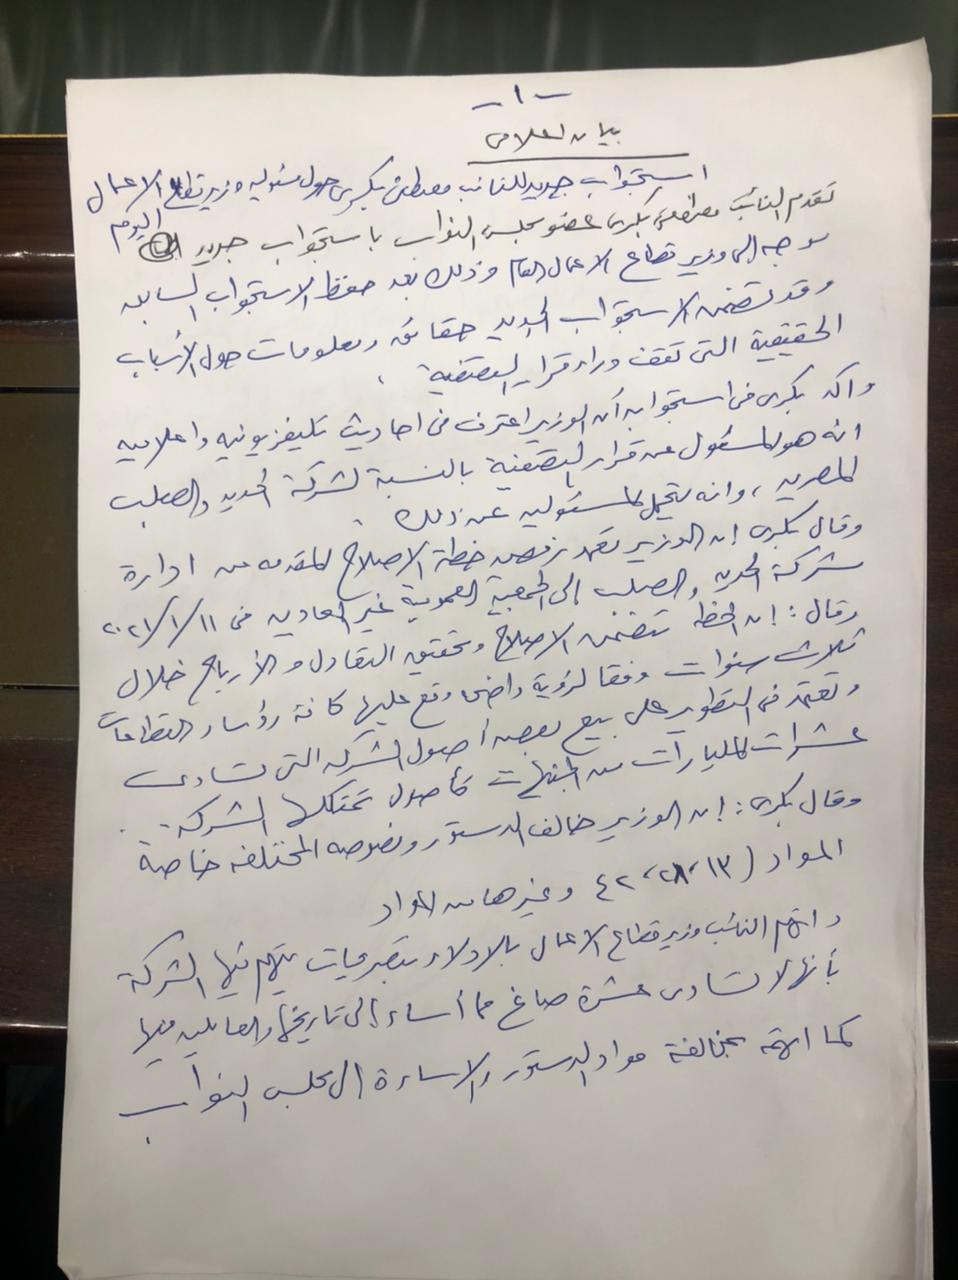 -١-
بيان إعلامى
استجواب جديد للنائب مصطفى بكرى حول مسئولية وزير قطاع الاعمال
تقدم النائب مصطفى بكرى عضو مجلس النواب باستجواب جديد اليوم
موجه إلى وزير قطاع الاعمال العام وذلك بعد حفظ الاستجواب السابق
وقد تضمن الاستجواب الجديد حقائق ومعلومات حول الأسباب
الحقيقية التى تقف وراء قرار التصفية .
وأكد بكرى فى استجوابه أن الوزير اعترف فى احاديث تليفزيونيه واعلاميه
انه هو المسئول عن قرار التصفية بالنسبة لشركة الحديد والصلب
المصريه ، وانه يتحمل المسئوليه عن ذلك .
وقال بكرى إن الوزير تعمد رفض خطة الاصلاح المقدمه من ادارة
شركة الحديد والصلب إلى الجمعية العمومية غير العاديه فى ٢٠٢١/١/١١
وقال : إن الخطه تتضمن الاصلاح وتحقيق التعادل والأرباح خلال
ثلاث سنوات وفقا لرؤية وقع عليها كافة رؤساء القطاعات
وتعتمد فى التطوير على بيع بعض أصول الشركه التى تساوى
عشرات المليارات من الجنيهات كأصول تمتلكها الشركة .
وقال بكرى : إن الوزير خالف الدستور ونصوصه المختلفه خاصة
المواد (١٣، ٢٨، ٤٢ وغيرها من المواد
واتهم النائب وزير قطاع الاعمال بالادلاء بتصريحات يتهم فيها الشركة
بأنها لا تساوى عشرة صاغ مما أساء إلى تاريخها والعاملين فيها
كما اتهمه بمخالفة مواد الدستور والاساءة إلى مجلس النواب